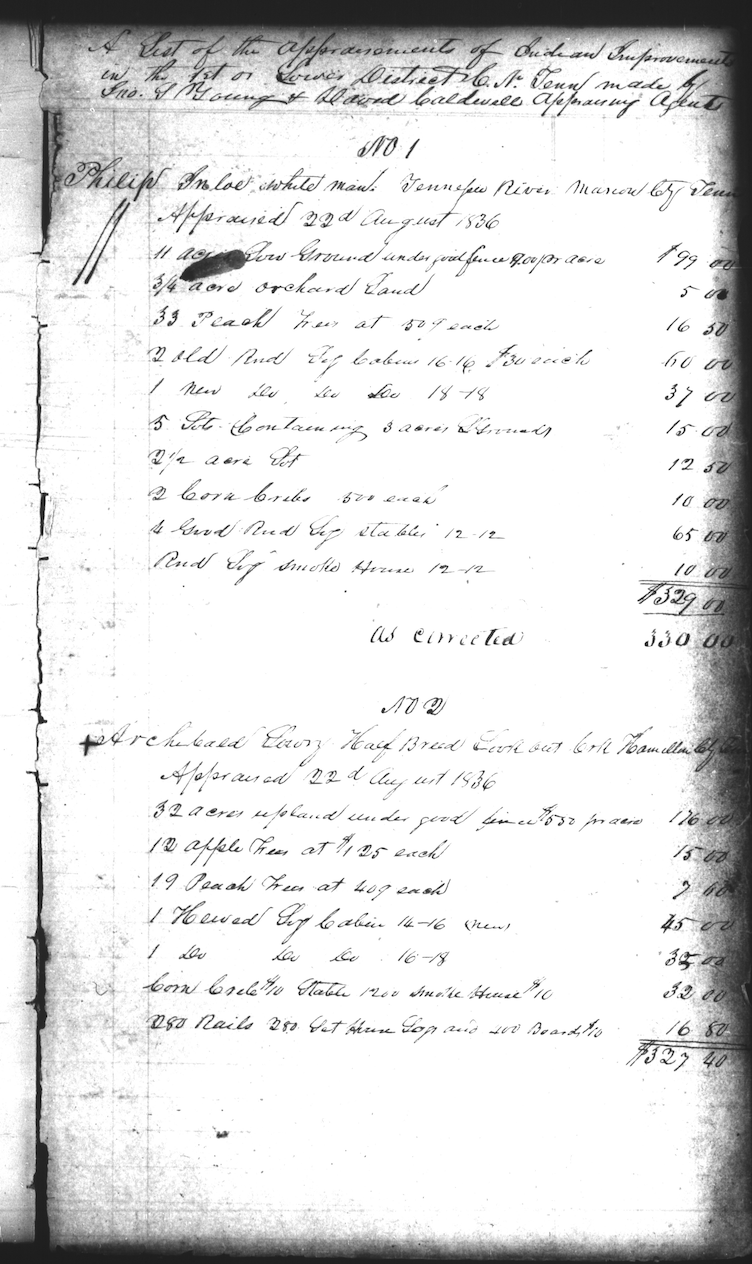 A List of the Appraisements of Indian Improvements
in the 1st or Lower District C. N. Tenn made by
Jno. S Young & David Caldwell Appraising Agents
NO 1
Philip Inloe white man. Tennessee River Marion Cty Tenn
Appraised 22d August 1836
11 acres Low Ground under good fence 9.00 pr acre $99 00
3/4 acre orchard Land 5 00
33 Peach Trees at 50¢ each 16 50
2 old Rnd Log Cabins 16-16 $30 each 60 00
1 new Do Do Do 18-18 37 00
5 Lots Containing 3 acres Grounds 15 00
2 1/2 acre Lot 12 50
2 Corn Cribs 500 each 10 00
4 Good Rnd Log stables 12-12 65 00
Rnd Log smoke House 12-12 10 00
$329 00
as corrected 330 00
NO 2
Archibald Lowry Half Breed Look out Crk Hamilton Cty Tenn
Appraised 22d August 1836
32 acres upland under good fence $5 50 pr acre 176 00
12 apple Trees at $1 25 each 15 00
19 Peach Trees at 40¢ each 7 60
1 Hewed Log Cabin 14-16 (new) 45 00
1 Do Do Do 16-18 35 00
Corn Crib $10 Stable 12 00 smoke House $10 32 00
280 Rails 2 80 Set House Logs and 400 Boards $10 16 80
$327 40